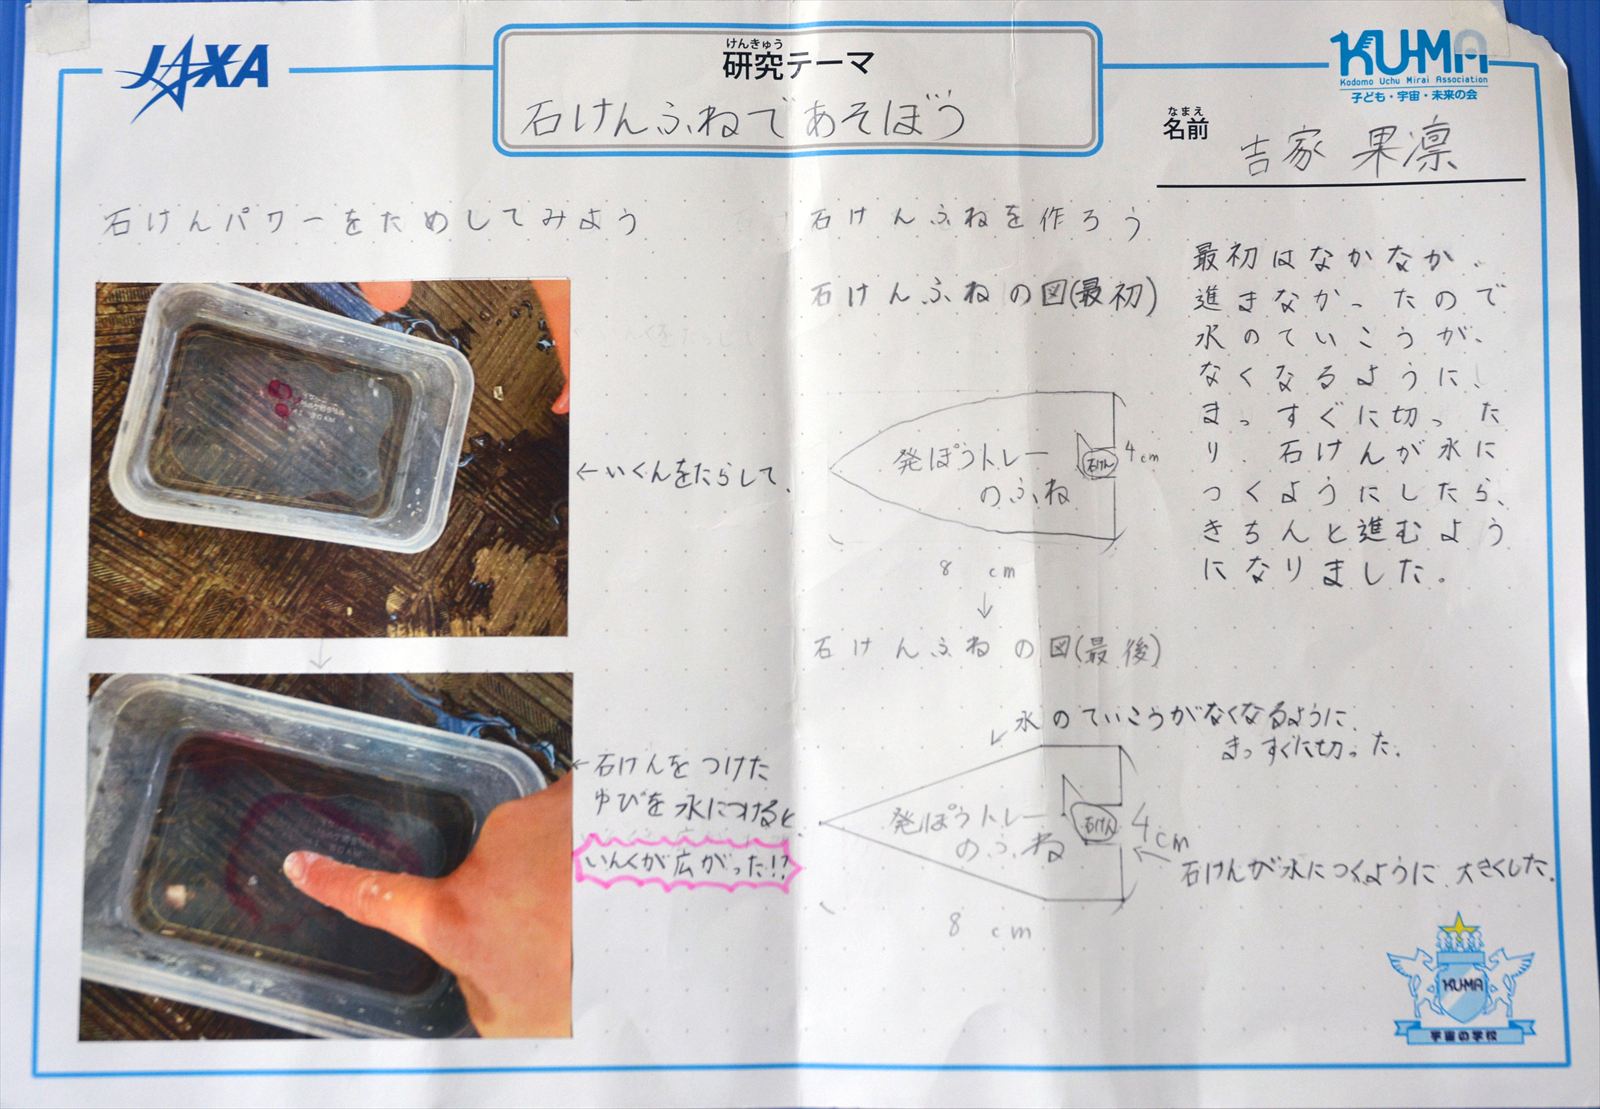 JAXA
けんきゅう
研究テーマ
石けんふねであそぼう
KUMA
Kodomo Uchu Mirai Association
子ども・宇宙・未来の会
なまえ
名前
吉家 果凛
石けんパワーをためしてみよう
←いくんをたらして、
←石けんをつけた
ゆびを水につけると、
いんくが広がった!?
石けんふねを作ろう
石けんふねの図(最初)
発ぽうトレー
のふね
石けん
4cm
8 cm
↓
石けんふねの図(最後)
水のていこうがなくなるように、
まっすぐに切った。
発ぽうトレー
のふね
石けん
4cm
石けんが水につくように、大きくした。
8 cm
最初はなかなか、
進まなかったので
水のていこうが、
なくなるように、
まっすぐに切った
り、石けんが水に
つくようにしたら、
きちんと進むよう
になりました。
KUMA
宇宙の学校